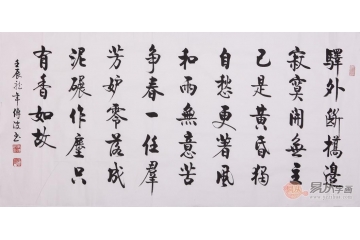 驛外斷橋邊
寂寞開無主
已是黃昏獨
自愁更著風
和雨無意苦
争春一任羣
芳妒零落成
泥碾作塵只
有香如故
壬辰年
易从字画